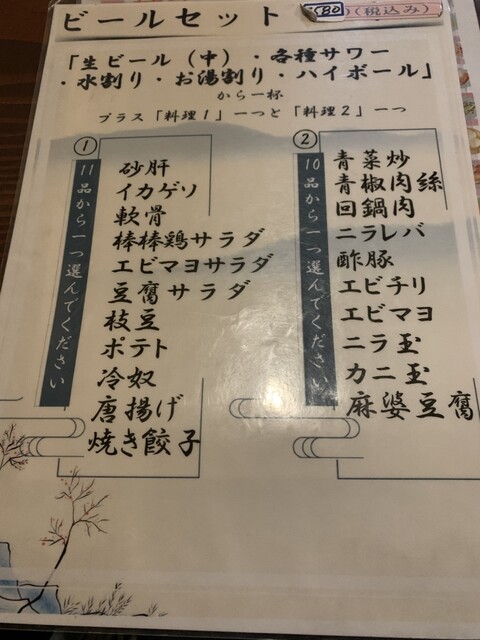 ビールセット
(税込み)
「生ビール(中)・各種サワー
・水割り・お湯割り・ハイボール」
から一杯
プラス「料理1」一つと「料理2」一つ
①
11品から一つ選んでください
砂肝
イカゲソ
軟骨
棒棒鶏サラダ
エビマヨサラダ
豆腐サラダ
枝豆
ポテト
冷奴
唐揚げ
焼き餃子
②
10品から一つ選んでください
青菜炒
青椒肉絲
回鍋肉
ニラレバ
酢豚
エビチリ
エビマヨ
ニラ玉
カニ玉
麻婆豆腐